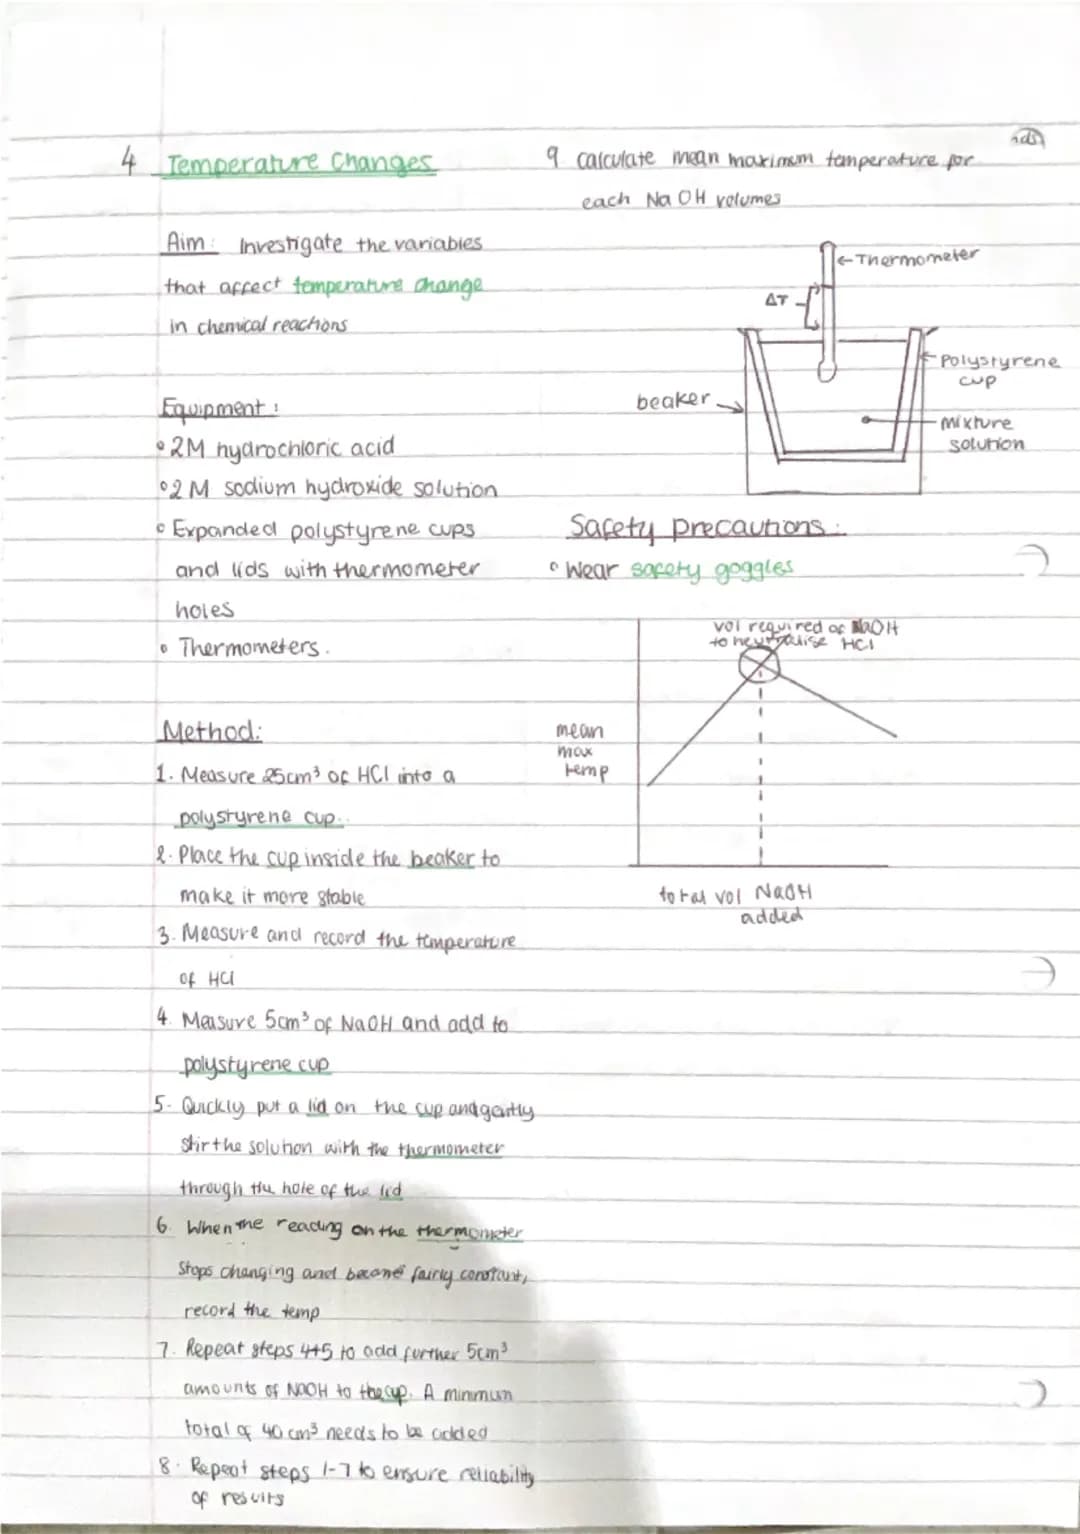 4 Temperature Changes
Aim: Investigate the variables
that affect temperature change
in chemical reactions
Equipment:
• 2M hydrochloric acid
• 2M sodium hydroxide solution
• Expanded polystyrene cups
and lids with thermometer
holes
• Thermometers.
Method:
1. Measure 25cm³ of HCl into a
polystyrene cup.
2. Place the cup inside the beaker to
make it more stable
3. Measure and record the temperature
of HCl
4. Measure 5cm³ of NaOH and add to
polystyrene cup
5. Quickly put a lid on the cup and gently
stir the solution with the thermometer
through the hole of the lid
6. When the reading on the thermometer
stops changing and becomes fairly constant,
record the temp
7. Repeat steps 4+5 to add further 5cm³
amounts of NaOH to the cup. A minimum
total of 40cm³ needs to be added
8. Repeat steps 1-7 to ensure reliability
of results
9 calculate mean maximum temperature for
each NaOH volumes
←Thermometer
ΔT
Polystyrene
cup
beaker
mixture
solution
Safety precautions:
• Wear safety goggles
vol required of NaOH
to neutralise HCl
mean
max
temp
total vol NaOH
added